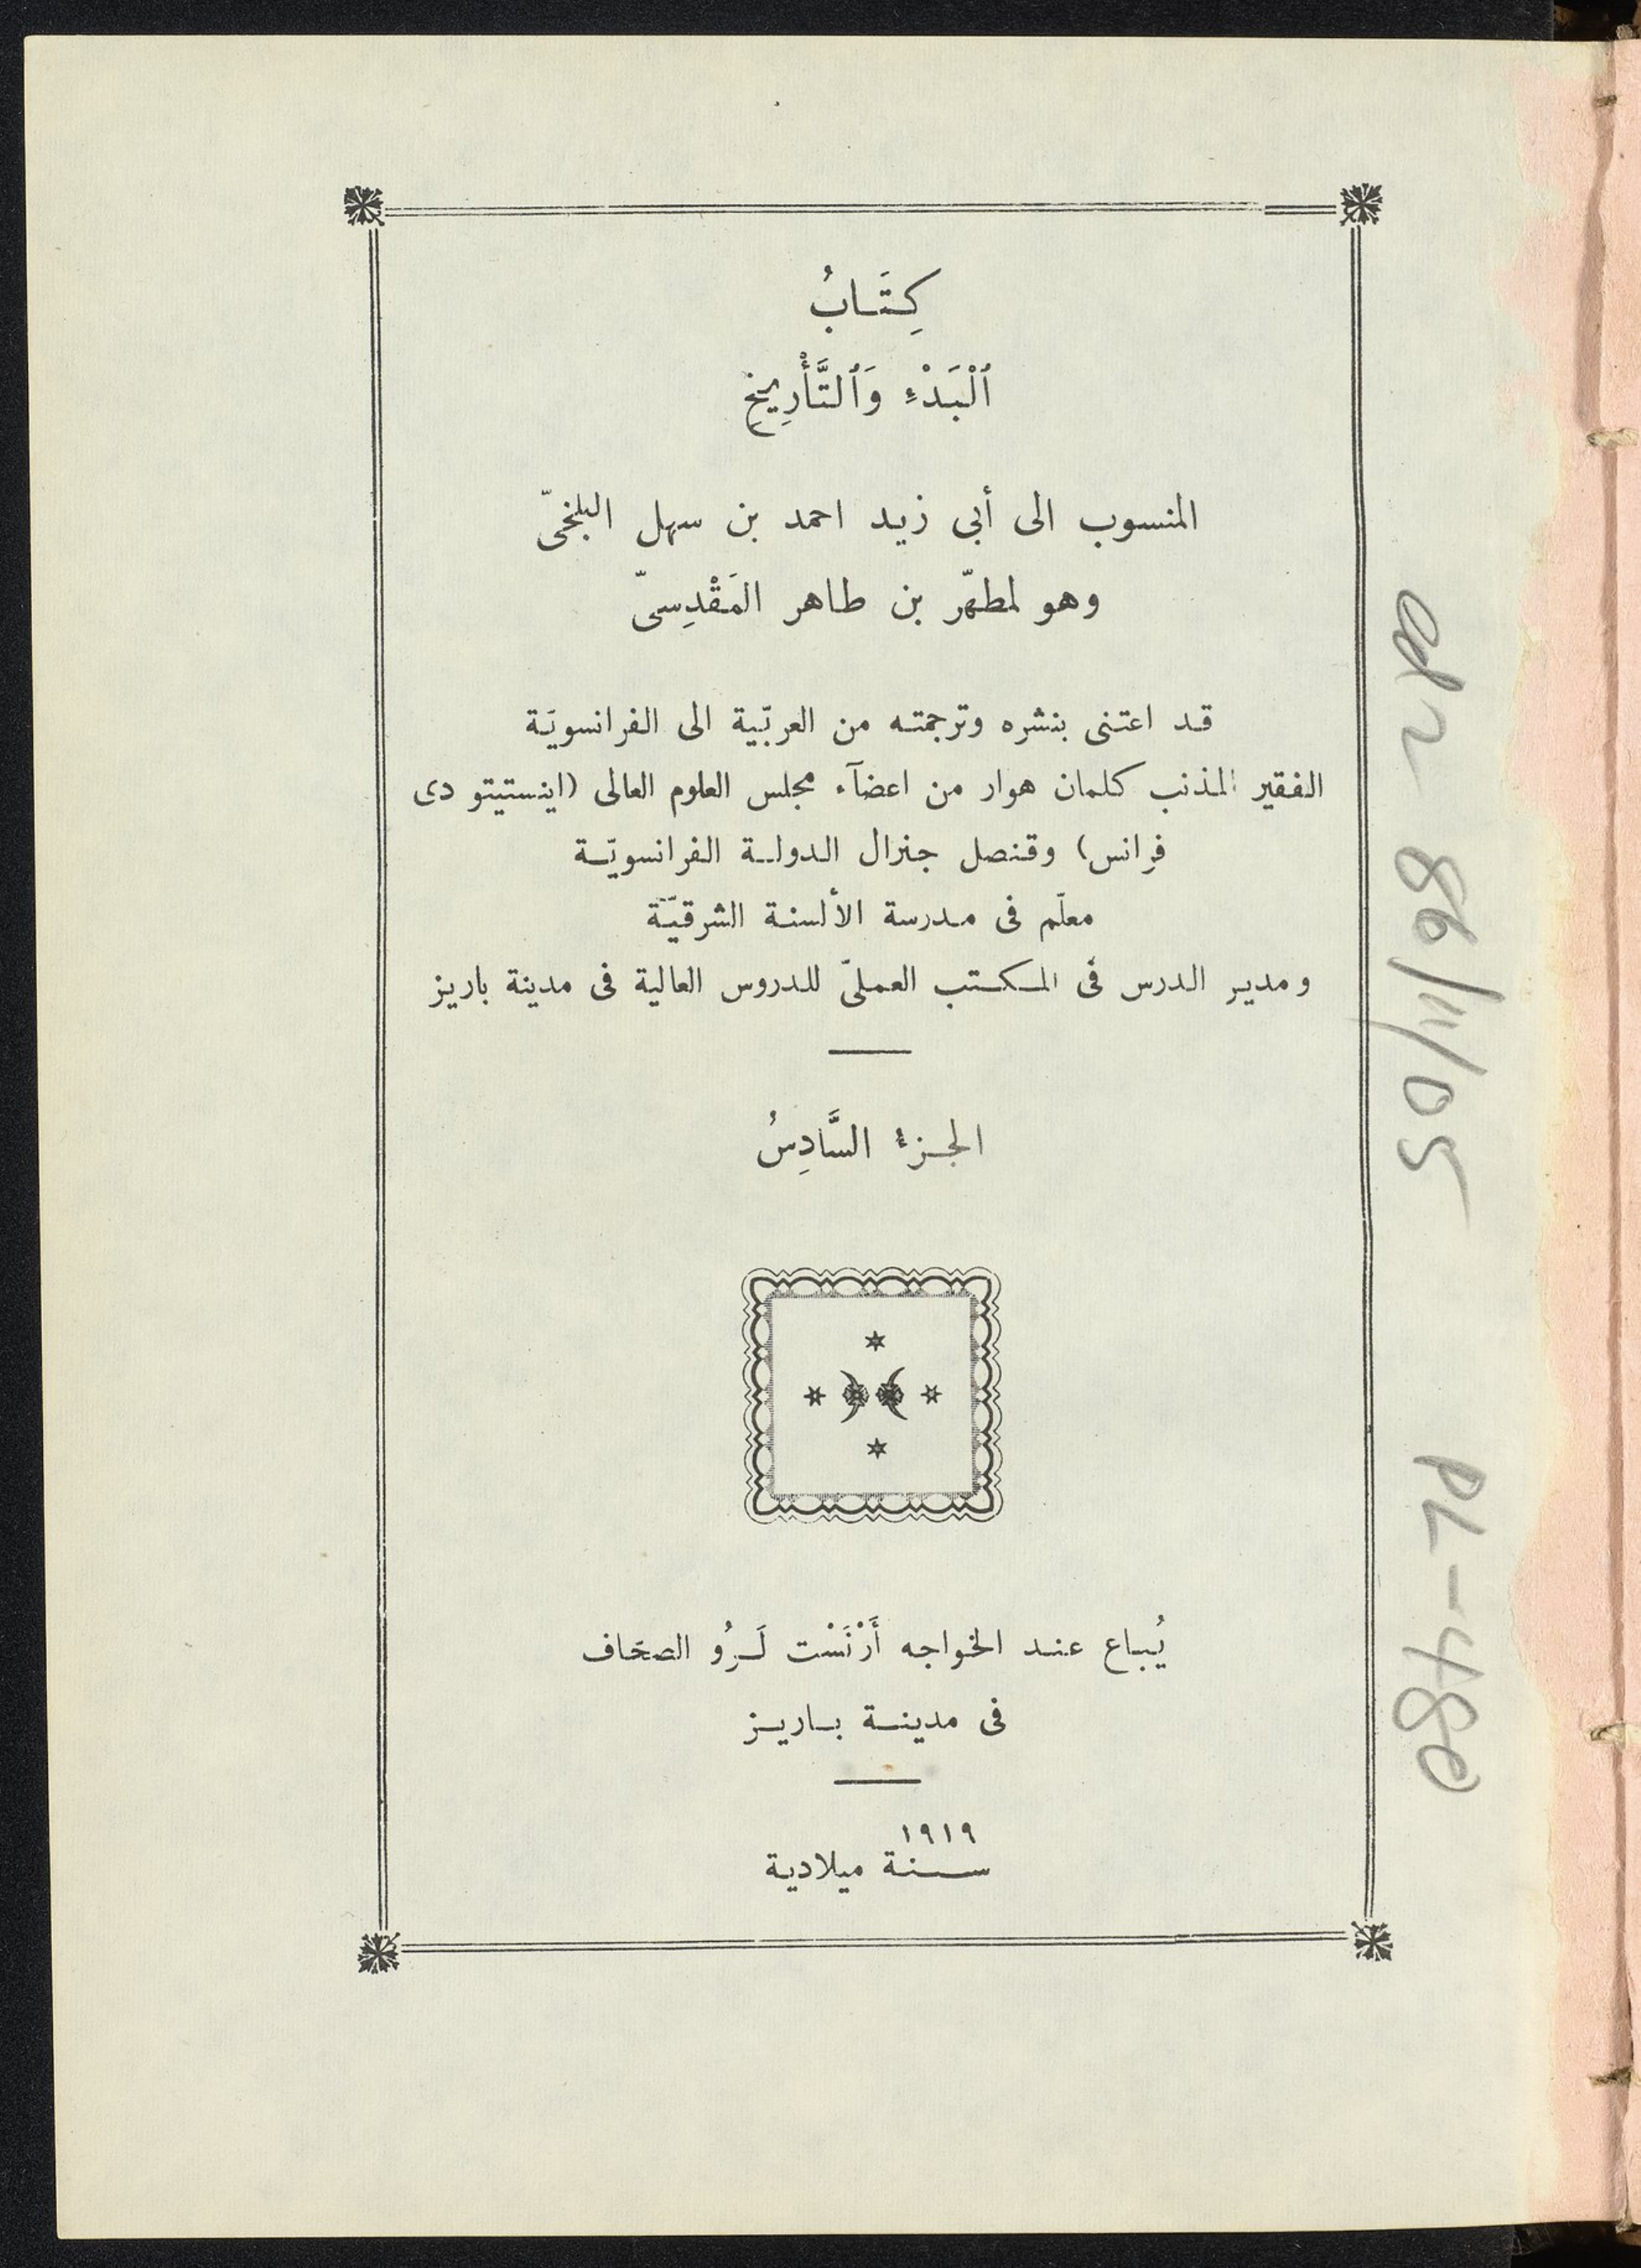 كِتَابُ
ٱلْبَدْءِ وَٱلتَّأْرِيخِ
المنسوب الى أبى زيد احمد بن سهل البلخىّ
وهو لمطهّر بن طاهر المَقْدِسىّ
قد اعتنى بنشره وترجمته من العربّية الى الفرانسويّة
الفقير المذنب كلمان هوار من اعضآء مجلس العلوم العالى (اينستيتو دى
فرانس) وقنصل جنرال الدولة الفرانسويّة
معلّم فى مدرسة الألسنة الشرقيّة
ومدير الدرس فى المكتب العملىّ للدروس العالية فى مدينة باريز
الجزء السَّادِسُ
يُباع عند الخواجه أَرْنَسْت لَرُو الصحّاف
فى مدينة باريز
١٩١٩
سنة ميلادية
86/11/05
PL-480